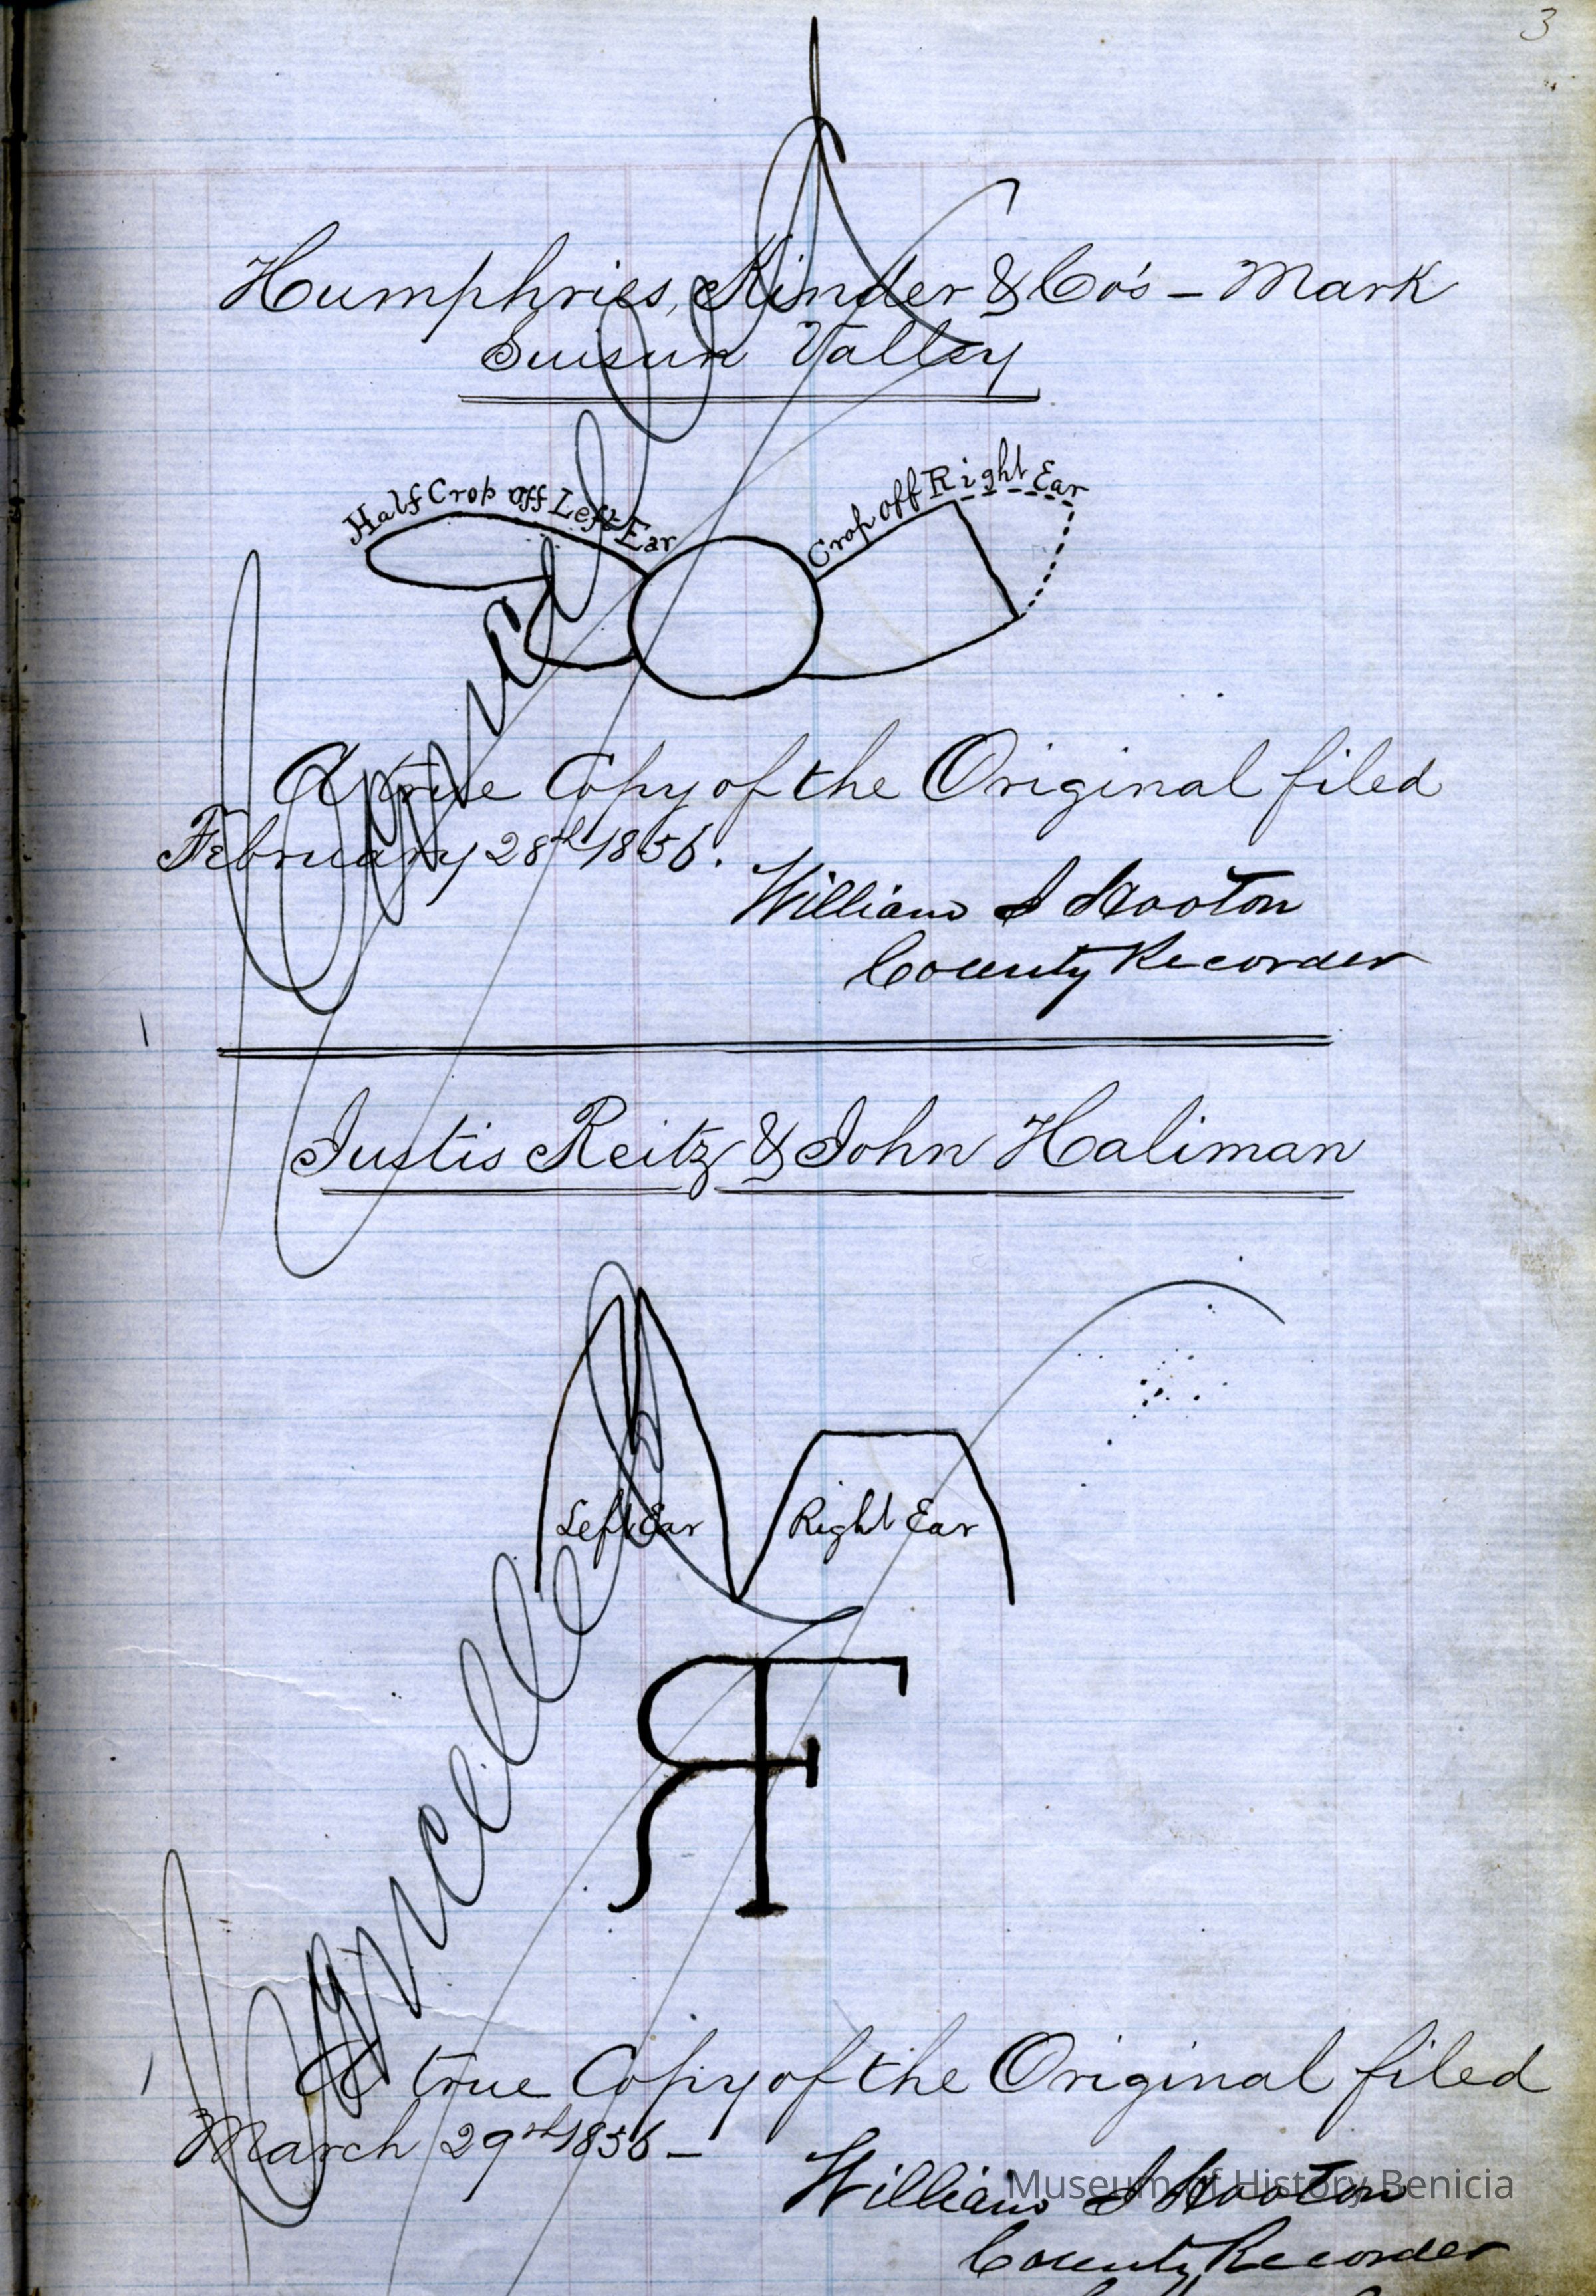 3
Humphries, Kinder & Co's - Mark
Suisun Valley
Half Crop off Left Ear
Crop off Right Ear
Cancelled
A true Copy of the Original filed
February 28th 1856.
William S Hooton
County Recorder
Justis Reitz & John Haliman
Left Ear
Right Ear
RF
Cancelled
A true Copy of the Original filed
March 29th 1856 -
William S Hooton
County Recorder
Museum of History Benicia